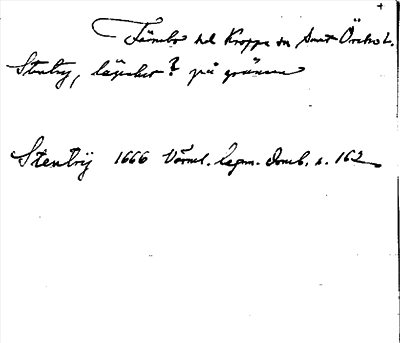 Färnebo hd Kroppa sn samt Örebro L.
Stentry, lägenhet? på gränsen
Stentrÿ 1666 Värml. lagm. domb. s. 162